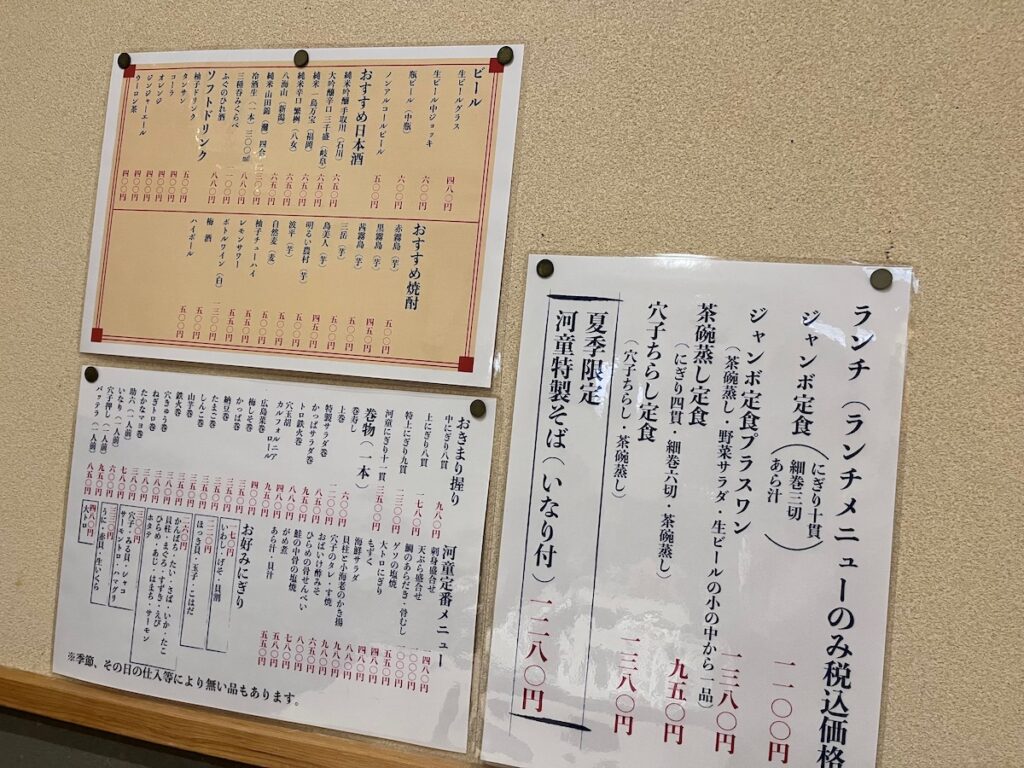 ビール
生ビールグラス 四八〇円
生ビール中ジョッキ 六〇〇円
瓶ビール（中瓶） 六〇〇円
ノンアルコールビール 五〇〇円
おすすめ日本酒
純米吟醸 手取川（石川） 六五〇円
大吟醸辛口 三千盛（岐阜） 六五〇円
純米 一鳥万宝（福岡） 六五〇円
純米辛口 繁桝（八女） 六五〇円
八海山（新潟） 六五〇円
純米 山田錦（灘）四合
冷酒生（一本）三〇〇㎖ 八八〇円
三種呑みくらべ
ふぐのひれ酒 八八〇円
ソフトドリンク
柚子ドリンク 五〇〇円
タンサン 四〇〇円
コーラ 四〇〇円
オレンジ 四〇〇円
ジンジャーエール 四〇〇円
ウーロン茶 四〇〇円
おすすめ焼酎
赤霧島（芋） 五〇〇円
黒霧島（芋） 四五〇円
茜霧島（芋） 五〇〇円
三岳（芋） 五〇〇円
島美人（芋） 四五〇円
明るい農村（芋） 五〇〇円
波平（芋） 五〇〇円
自然麦（麦） 五〇〇円
柚子チューハイ 五五〇円
レモンサワー 五五〇円
ボトルワイン（白）
梅酒 五〇〇円
ハイボール 五五〇円
おきまり握り
中にぎり八貫 九八〇円
上にぎり八貫 一七八〇円
特上にぎり九貫 二三〇〇円
河童にぎり十一貫 三五〇〇円
巻物（一本）
巻寿し
上巻 六〇〇円
特製サラダ巻 八五〇円
かっぱサラダ巻
トロ鉄火巻
穴玉胡
カルフォルニアロール
広島菜巻
梅しそ巻
かっぱ巻
納豆巻
たまご巻
しんこ巻
山芋巻
鉄火巻
穴きゅう巻
ねぎトロ巻
たかなマヨ巻
助六（一人前）
いなり（一人前）
穴子押し（一人前）
バッテラ（一人前） 八五〇円
河童定番メニュー
刺身盛合せ
天ぷら盛合せ
鯛のあらだき・骨むし
ゲソの塩焼
大トロにぎり
もずく
海鮮サラダ
貝柱と小海老のかき揚
穴子のタレ・す焼
おばいけ酢みそ
ひらめの骨せんべい
鮭の中骨の塩焼
がめ煮
あら汁・貝汁
お好みにぎり
一七〇円
いわし・げそ・貝割
二二〇円
ほっき貝・玉子・こはだ
二六〇円
かんぱち・たい・さば・いか・たこ
貝柱・まぐろ・すずき・えび
ひらめ・あじ・はまち・サーモン
ホタテ
三〇〇円
穴子・みる貝・シャコ
サーモントロ・ハマグリ
うに・赤貝・生いくら
四八〇円
大トロ
※季節、その日の仕入等により無い品もあります。
ランチ（ランチメニューのみ税込価格
ジャンボ定食（にぎり十貫 細巻三切 あら汁） 一一〇〇円
ジャンボ定食プラスワン 一三八〇円
（茶碗蒸し・野菜サラダ・生ビールの小の中から一品）
茶碗蒸し定食 九五〇円
（にぎり四貫・細巻六切・茶碗蒸し）
穴子ちらし定食 一三八〇円
（穴子ちらし・茶碗蒸し）
夏季限定
河童特製そば（いなり付） 一二八〇円